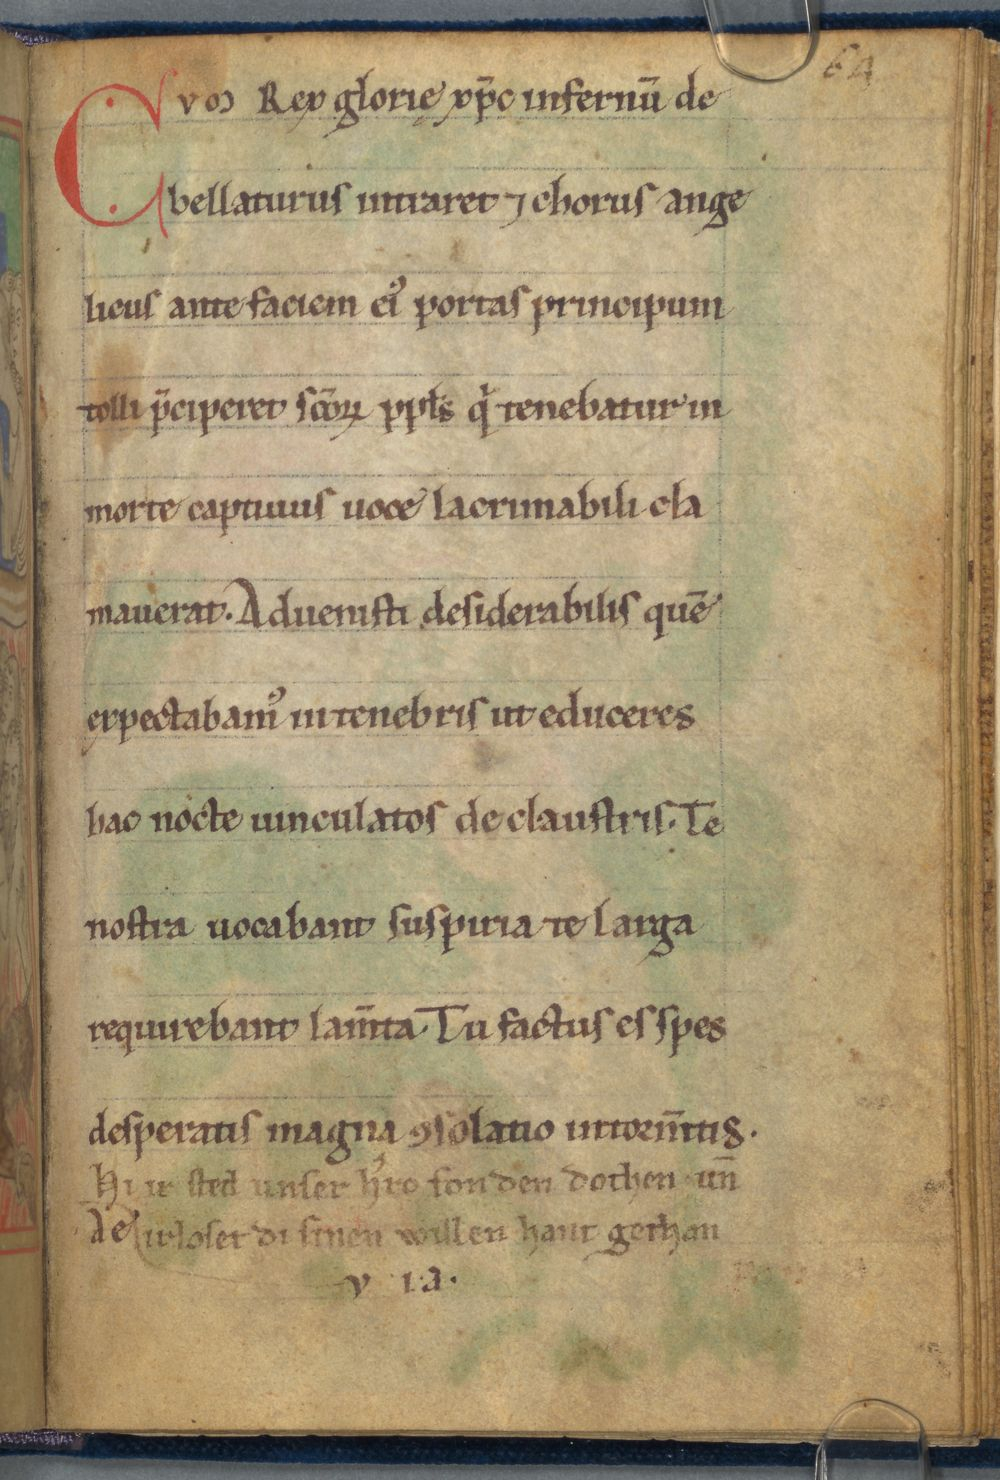 64
CVM Rex glorię xp̄c infernū de
bellaturus intraret ⁊ chorus ange
licus ante faciem ei᷒ portas principum
tolli p̄ciperet sc̄oꝝ ppl̄s q͛ tenebatur in
morte captiuus uoce lacrimabili cla
mauerat. Aduenisti desiderabilis quē
expectabam᷒ in tenebris ut educeres
hac nocte uinculatos de claustris. Te
nostra uocabant suspiria te larga
requirebant lam̄ta. Tu factus es spes
desperatis magna ꝯsolatio in torm̄tis.
Hi ir sted unser h̓re fon den dothen un̄
irloset di sinen willen hant gethan
AEVIA.